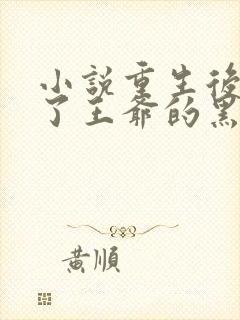 小說重生後
了王爺的黑
黃順